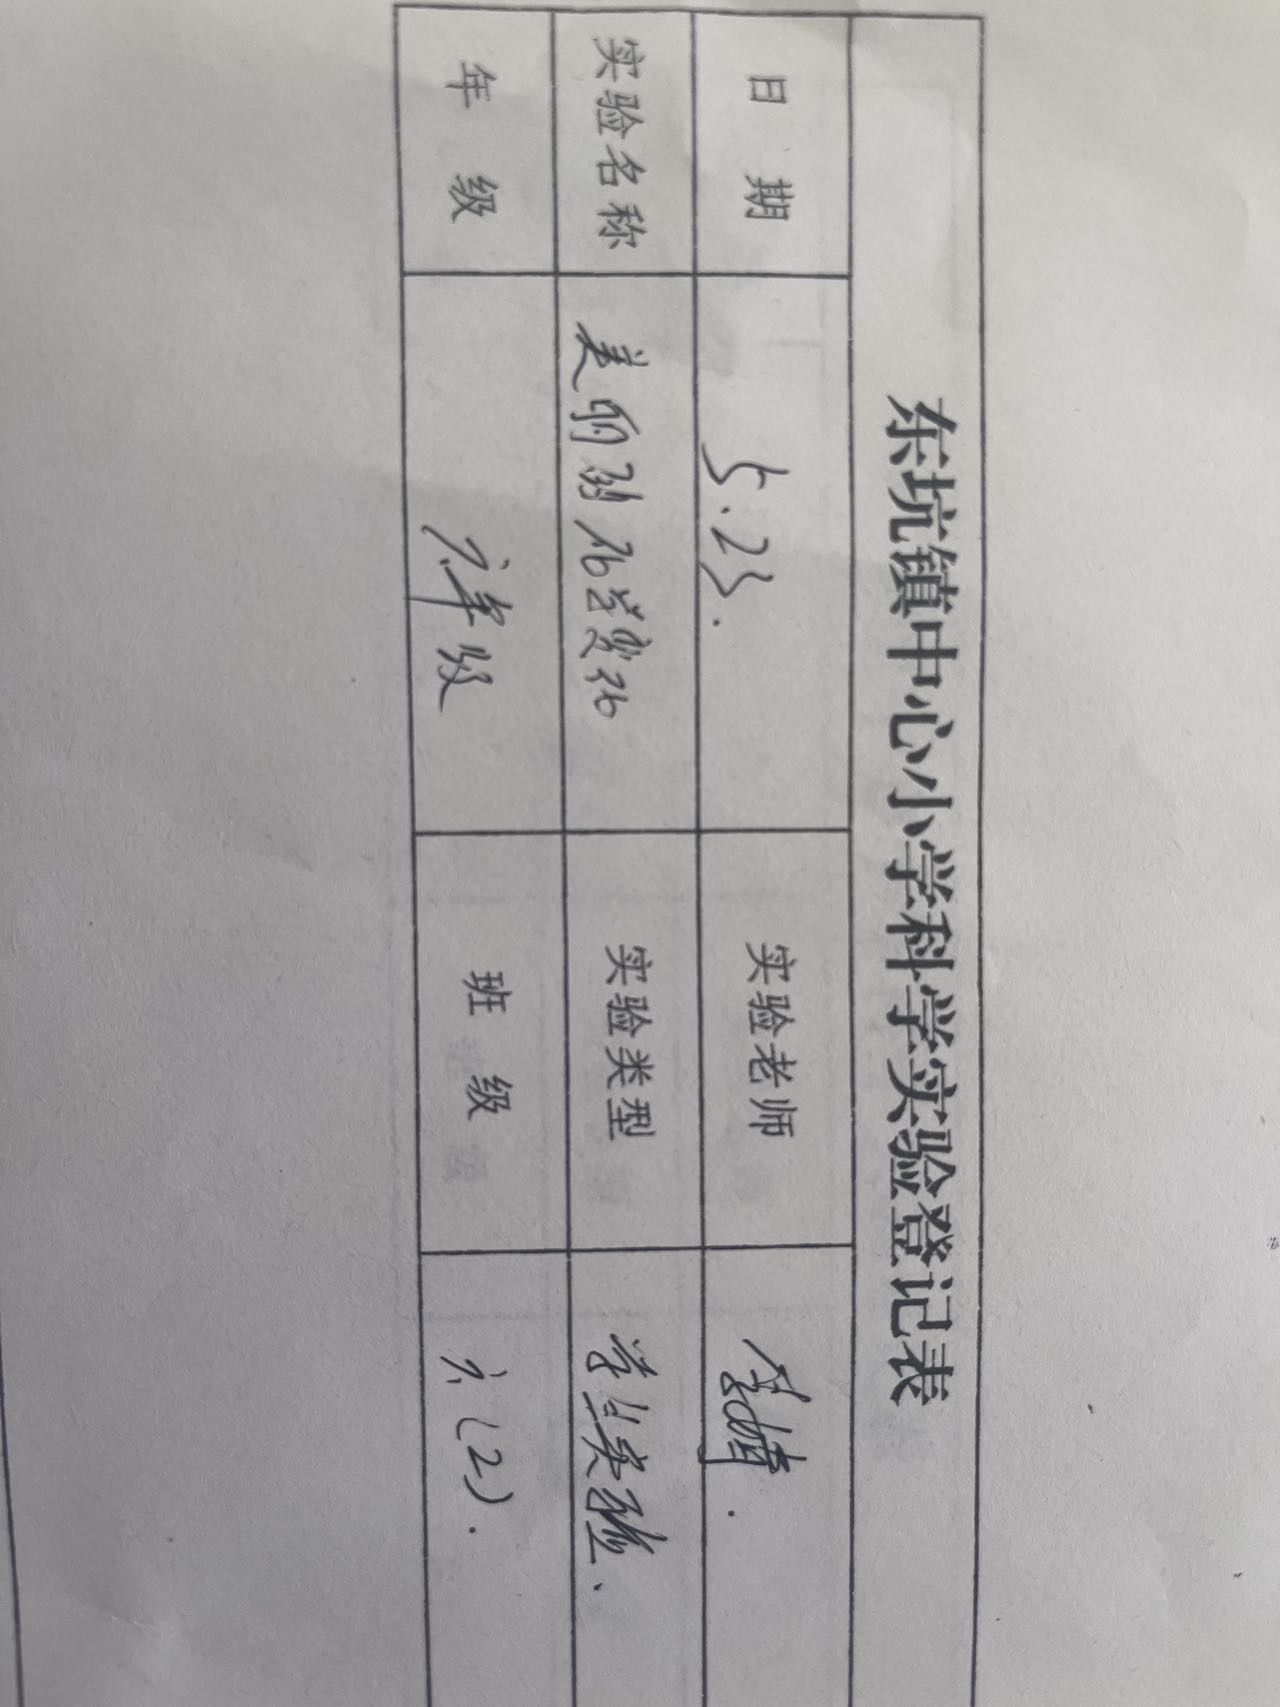 东坑镇中心小学科学实验登记表
日 期 5.23. 实验老师
实验名称 美丽的化学变化 实验类型 学生实验、
年 级 六年级 班 级 六(2).